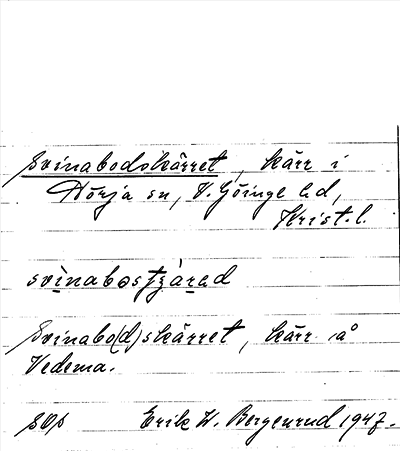 Svinabodskärret, kärr i
Nörja sn, V. Göinge hd,
Krist. l.
svinabostzärad
Svinabo(d)skärret, kärr å
Vedema.
Erik W. Bergenrud 1947.